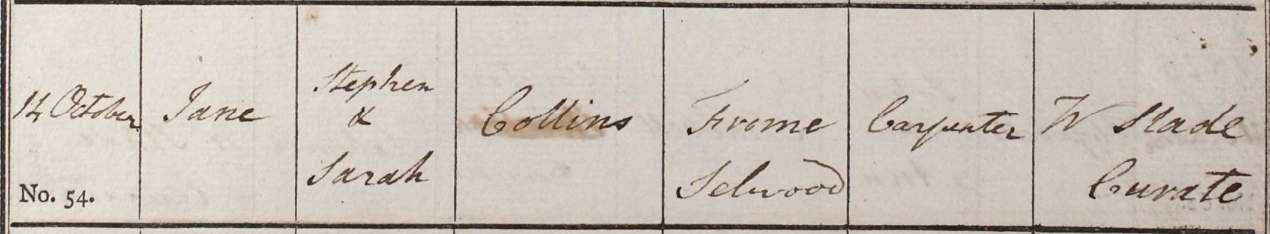 14 October
No. 54.
Jane
Stephen
&
Sarah
Collins
Frome
Selwood
Carpenter
W Slade
Curate